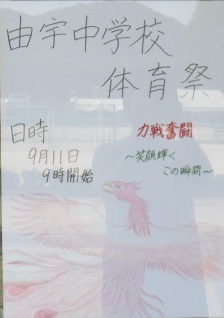 由宇中学校
体育祭
日時
9月11日
9時開始
力戦奮闘
～笑顔輝く
この瞬間～